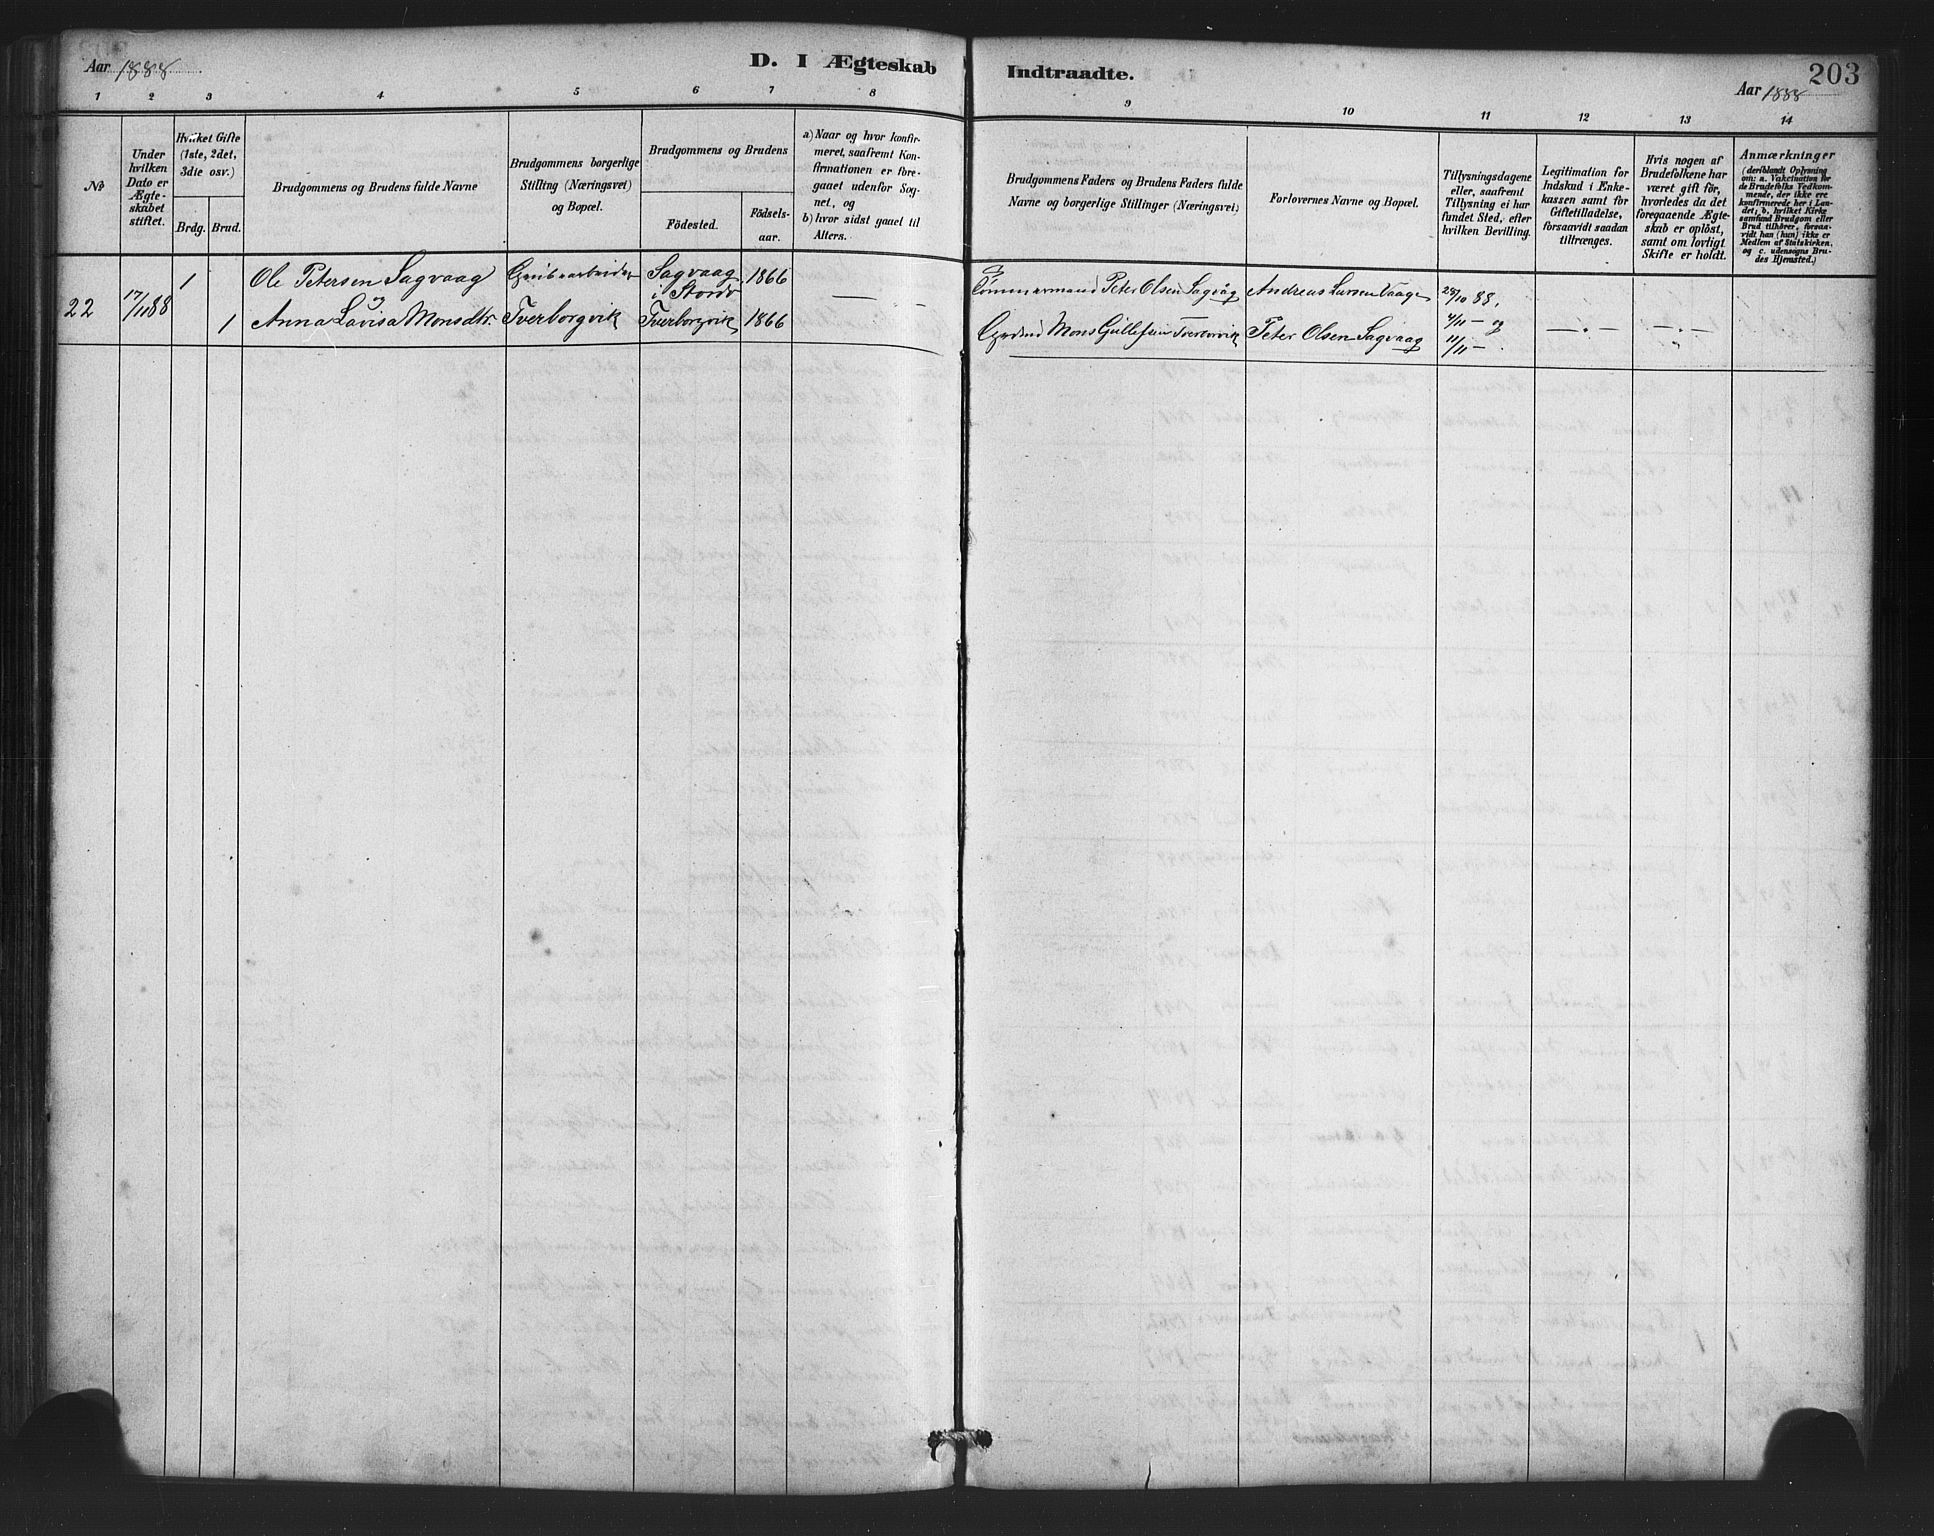 Aar 1888
D. I Ægteskab Indtraadte.
203
Aar 1888
1 2 3 4 5 6 7 8 9 10 11 12 13 14
No
Under hvilken Dato er Ægteskabet stiftet.
Hvilket Gifte (1ste, 2det, 3die osv.)
Brdg. Brud.
Brudgommens og Brudens fulde Navne
Brudgommens borgerlige Stilling (Næringsvei) og Bopæl.
Brudgommens og Brudens
Fødested.
Fødselsaar.
a) Naar og hvor konfirmeret, saafremt Konfirmationen er foregaaet udenfor Sognet, og
b) hvor sidst gaaet til Alters.
Brudgommens Faders og Brudens Faders fulde Navne og borgerlige Stillinger (Næringsvei)
Forlovernes Navne og Bopæl.
Tillysningsdagene eller, saafremt Tillysning ei har fundet Sted, efter hvilken Bevilling.
Legitimation for Indskud i Enkekassen samt for Giftetilladelse, forsaavidt saadan tiltrænges.
Hvis nogen af Brudefolkene har været gift før, hvorledes da det foregaaende Ægteskab er opløst, samt om lovligt Skifte er holdt.
Anmærkninger (deriblandt Oplysning om: a. Vakcination for de Brudefolks Vedkommende, der ikke ere konfirmerede her i Landet, b. hvilket Kirkesamfund Brudgom eller Brud tilhører, forsaavidt han (hun) ikke er Medlem af Statskirken, og c. udensogns Brudes Hjemsted.)
1 Ole Petersen Sagvaag Grubearbeider Sagvaag i Stordø 1866 Tømmermand Peter Olsen Sagvåg Andreas Larsen Vaage 28/10 88,
22 17/11 88 og
1 Anna Lavisa Monsdtr. Tverborgvik Tverborgvik 1866 Mons Gullefsen Tverborvik Peter Olsen Sagvaag 4/11 — og
11/11 —